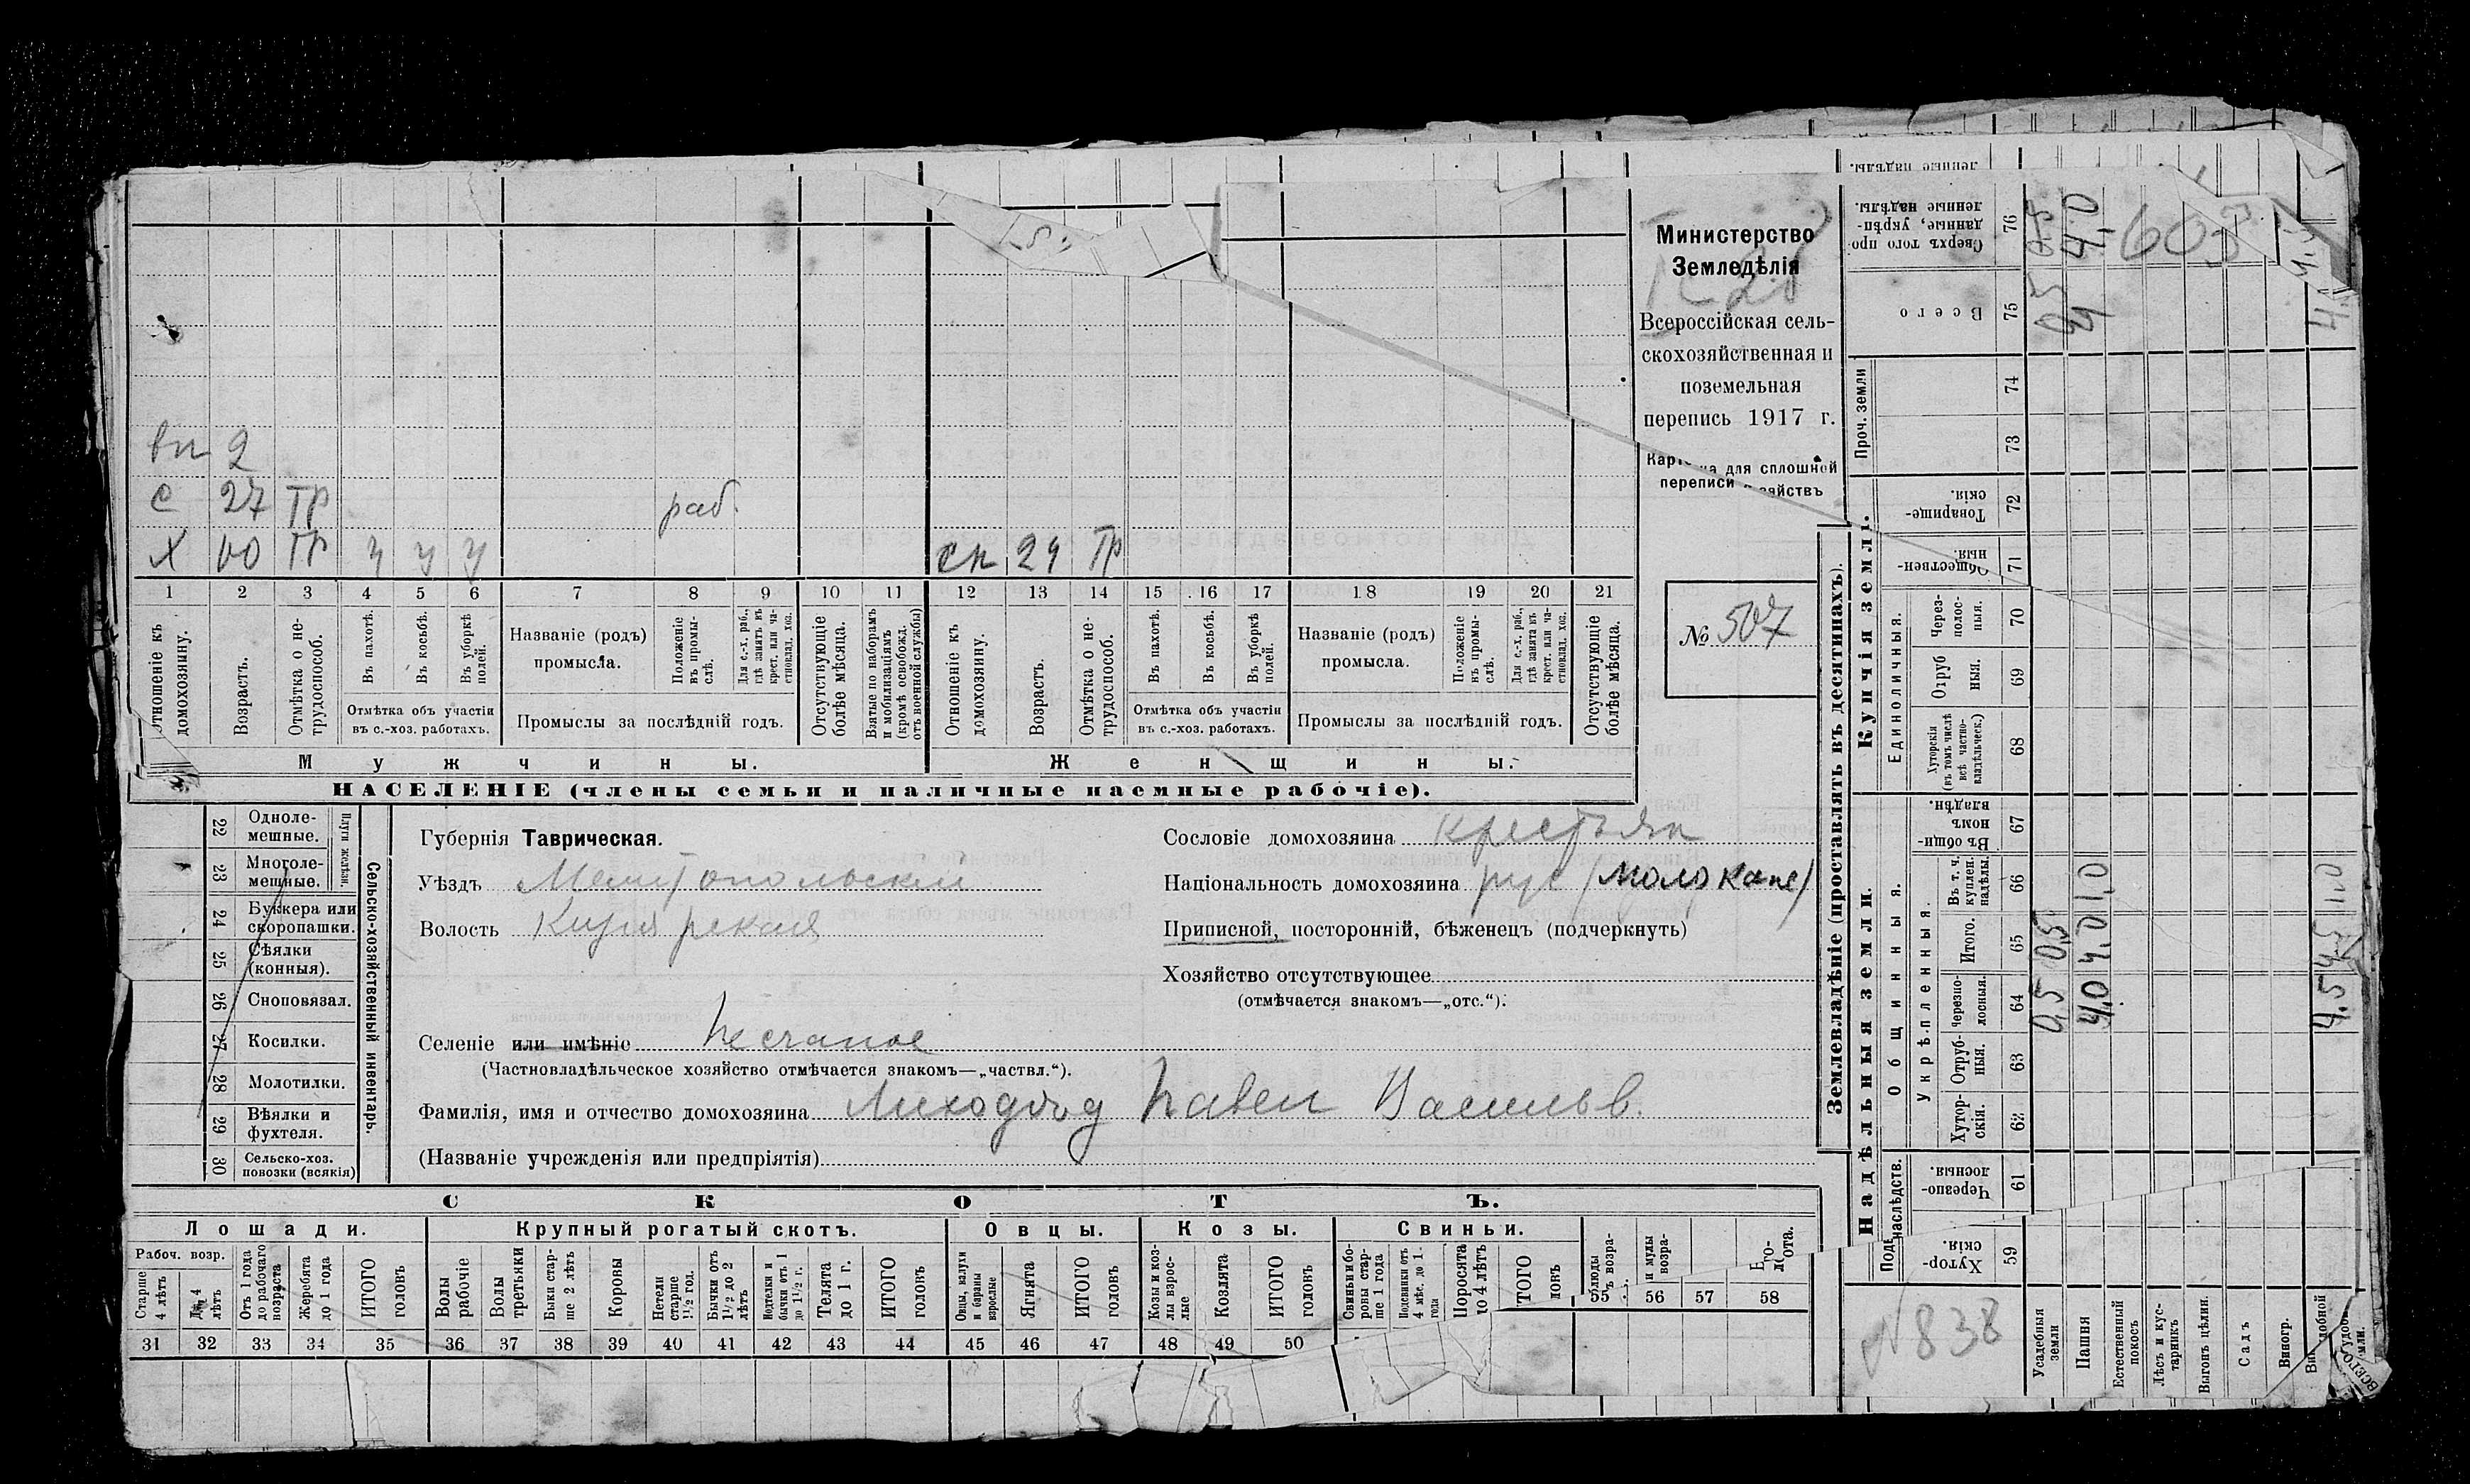 Министерство
Земледѣлія
Всероссійская сель-
скохозяйственная и
поземельная
перепись 1917 г.
для сплошной
переписи
№ 507
вп 2
с 27 тр раб.
х 60 тр у у у
сн 24 тр
1 2 3 4 5 6 7 8 9 10 11 12 13 14 15 16 17 18 19 20 21
Отношеніе къ домохозяину.
Возрастъ.
Отмѣтка о не-трудоспособ.
Въ пахотѣ.
Въ косьбѣ.
Въ уборкѣ полей.
Отмѣтка объ участіи
въ с.-хоз. работахъ.
Названіе (родъ)
промысла.
Положеніе въ промы-слѣ.
Для с.-х. раб., гдѣ занятъ въ крест. или ча-стновлад. хоз.
Промыслы за послѣдній годъ.
Отсутствующіе болѣе мѣсяца.
Взятые по наборамъ и мобилизаціямъ (кромѣ освобожд. отъ военной службы)
Отношеніе къ домохозяину.
Возрастъ.
Отмѣтка о не-трудоспособ.
Въ пахотѣ.
Въ косьбѣ.
Въ уборкѣ полей.
Отмѣтка объ участіи
въ с.-хоз. работахъ.
Названіе (родъ)
промысла.
Положеніе въ промы-слѣ.
Для с.-х. раб., гдѣ занята въ крест. или ча-стновлад. хоз.
Промыслы за послѣдній годъ.
Отсутствующіе болѣе мѣсяца.
Мужчины. Женщины.
НАСЕЛЕНІЕ (члены семьи и наличные наемные рабочіе).
Сельско-хозяйственный инвентарь.
Плуги желѣзн.
22 Одноле-мешные.
23 Многоле-мешные.
24 Буккера или скоропашки.
25 Сѣялки (конныя).
26 Сноповязал.
27 Косилки.
28 Молотилки.
29 Вѣялки и фухтеля.
30 Сельско-хоз. повозки (всякія)
Губернія Таврическая.
Уѣздъ Мелитопольский
Волость Кизиярская
Сословіе домохозяина крестьян
Національность домохозяина рус (молокане)
Приписной, посторонній, бѣженецъ (подчеркнуть)
Хозяйство отсутствующее
(отмѣчается знакомъ—„отс.“).
Селеніе или имѣніе Песчаное
(Частновладѣльческое хозяйство отмѣчается знакомъ—„частвл.“).
Фамилія, имя и отчество домохозяина Лиходод Павел Васильв.
(Названіе учрежденія или предпріятія)
СКОТЪ.
Лошади. Крупный рогатый скотъ. Овцы. Козы. Свиньи.
Рабоч. возр.
Старше 4 лѣтъ
До 4 лѣтъ
Отъ 1 года до рабочаго возраста
Жеребята до 1 года
ИТОГО головъ
Волы рабочіе
Волы третьяки
Быки стар-ше 2 лѣтъ
Коровы
Нетели старше 1½ год.
Бычки отъ 1½ до 2 лѣтъ
Подтелки и бычки отъ 1 до 1½ г.
Телята до 1 г.
ИТОГО головъ
Овцы, валухи и бараны взрослые
Ягнята
ИТОГО головъ
Козы и коз-лы взрос-лые
Козлята
ИТОГО головъ
Свиньи и бо-ровы стар-ше 1 года
Подсвинки отъ 4 мѣс. до 1 года
Поросята
31 32 33 34 35 36 37 38 39 40 41 42 43 44 45 46 47 48 49 50 55 56 57 58
Землевладѣніе (проставлять въ десятинахъ).
Надѣльныя земли. Купчія земли.
Проч. земли
Общинныя.
Укрѣпленныя.
Единоличныя.
Сверхъ того про-данные, укрѣп-ленные надѣлы. 76
Всего 75
74
73
Товарище-скія. 72
Обществен-ныя. 71
Через-полос-ныя. 70
Отруб ныя. 69
Хуторскія (въ томъ числѣ всѣ частно-владѣльческ.) 68
Въ общин-номъ владѣн. 67
Въ т. ч. куплен. надѣлы. 66
Итого. 65
Черезпо-лосныя. 64
Отруб-ныя. 63
Хутор-скія. 62
Черезпо-лосныя. 61
Хутор-скія. 59
0,5 0,5
4,0 4,0 1,0
4,5 4,5 1,0
0,5
4 4,0
603
№ 838
Усадебныя земли
Пашня
Естественный покосъ
Лѣсъ и кус-тарникъ
Выгонъ цѣлин.
Садъ
Виногр.
ВСЕГО